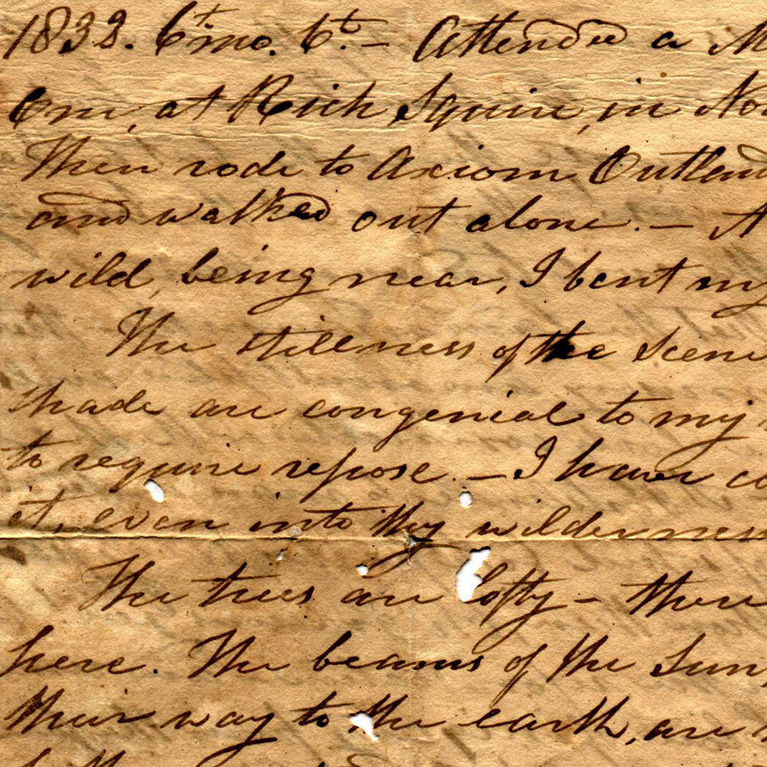 1833. 6th mo. 6th. — Attended a M
at Rich Square, in No
Then rode to Axiom Outland
and walked out alone. — A
wild, being near, I bent my
The stillness of the scene
shade are congenial to my
to require repose. — I have co
it, even into the wilderness
The trees are lofty — there
here. The beams of the Sun,
their way to the earth, are